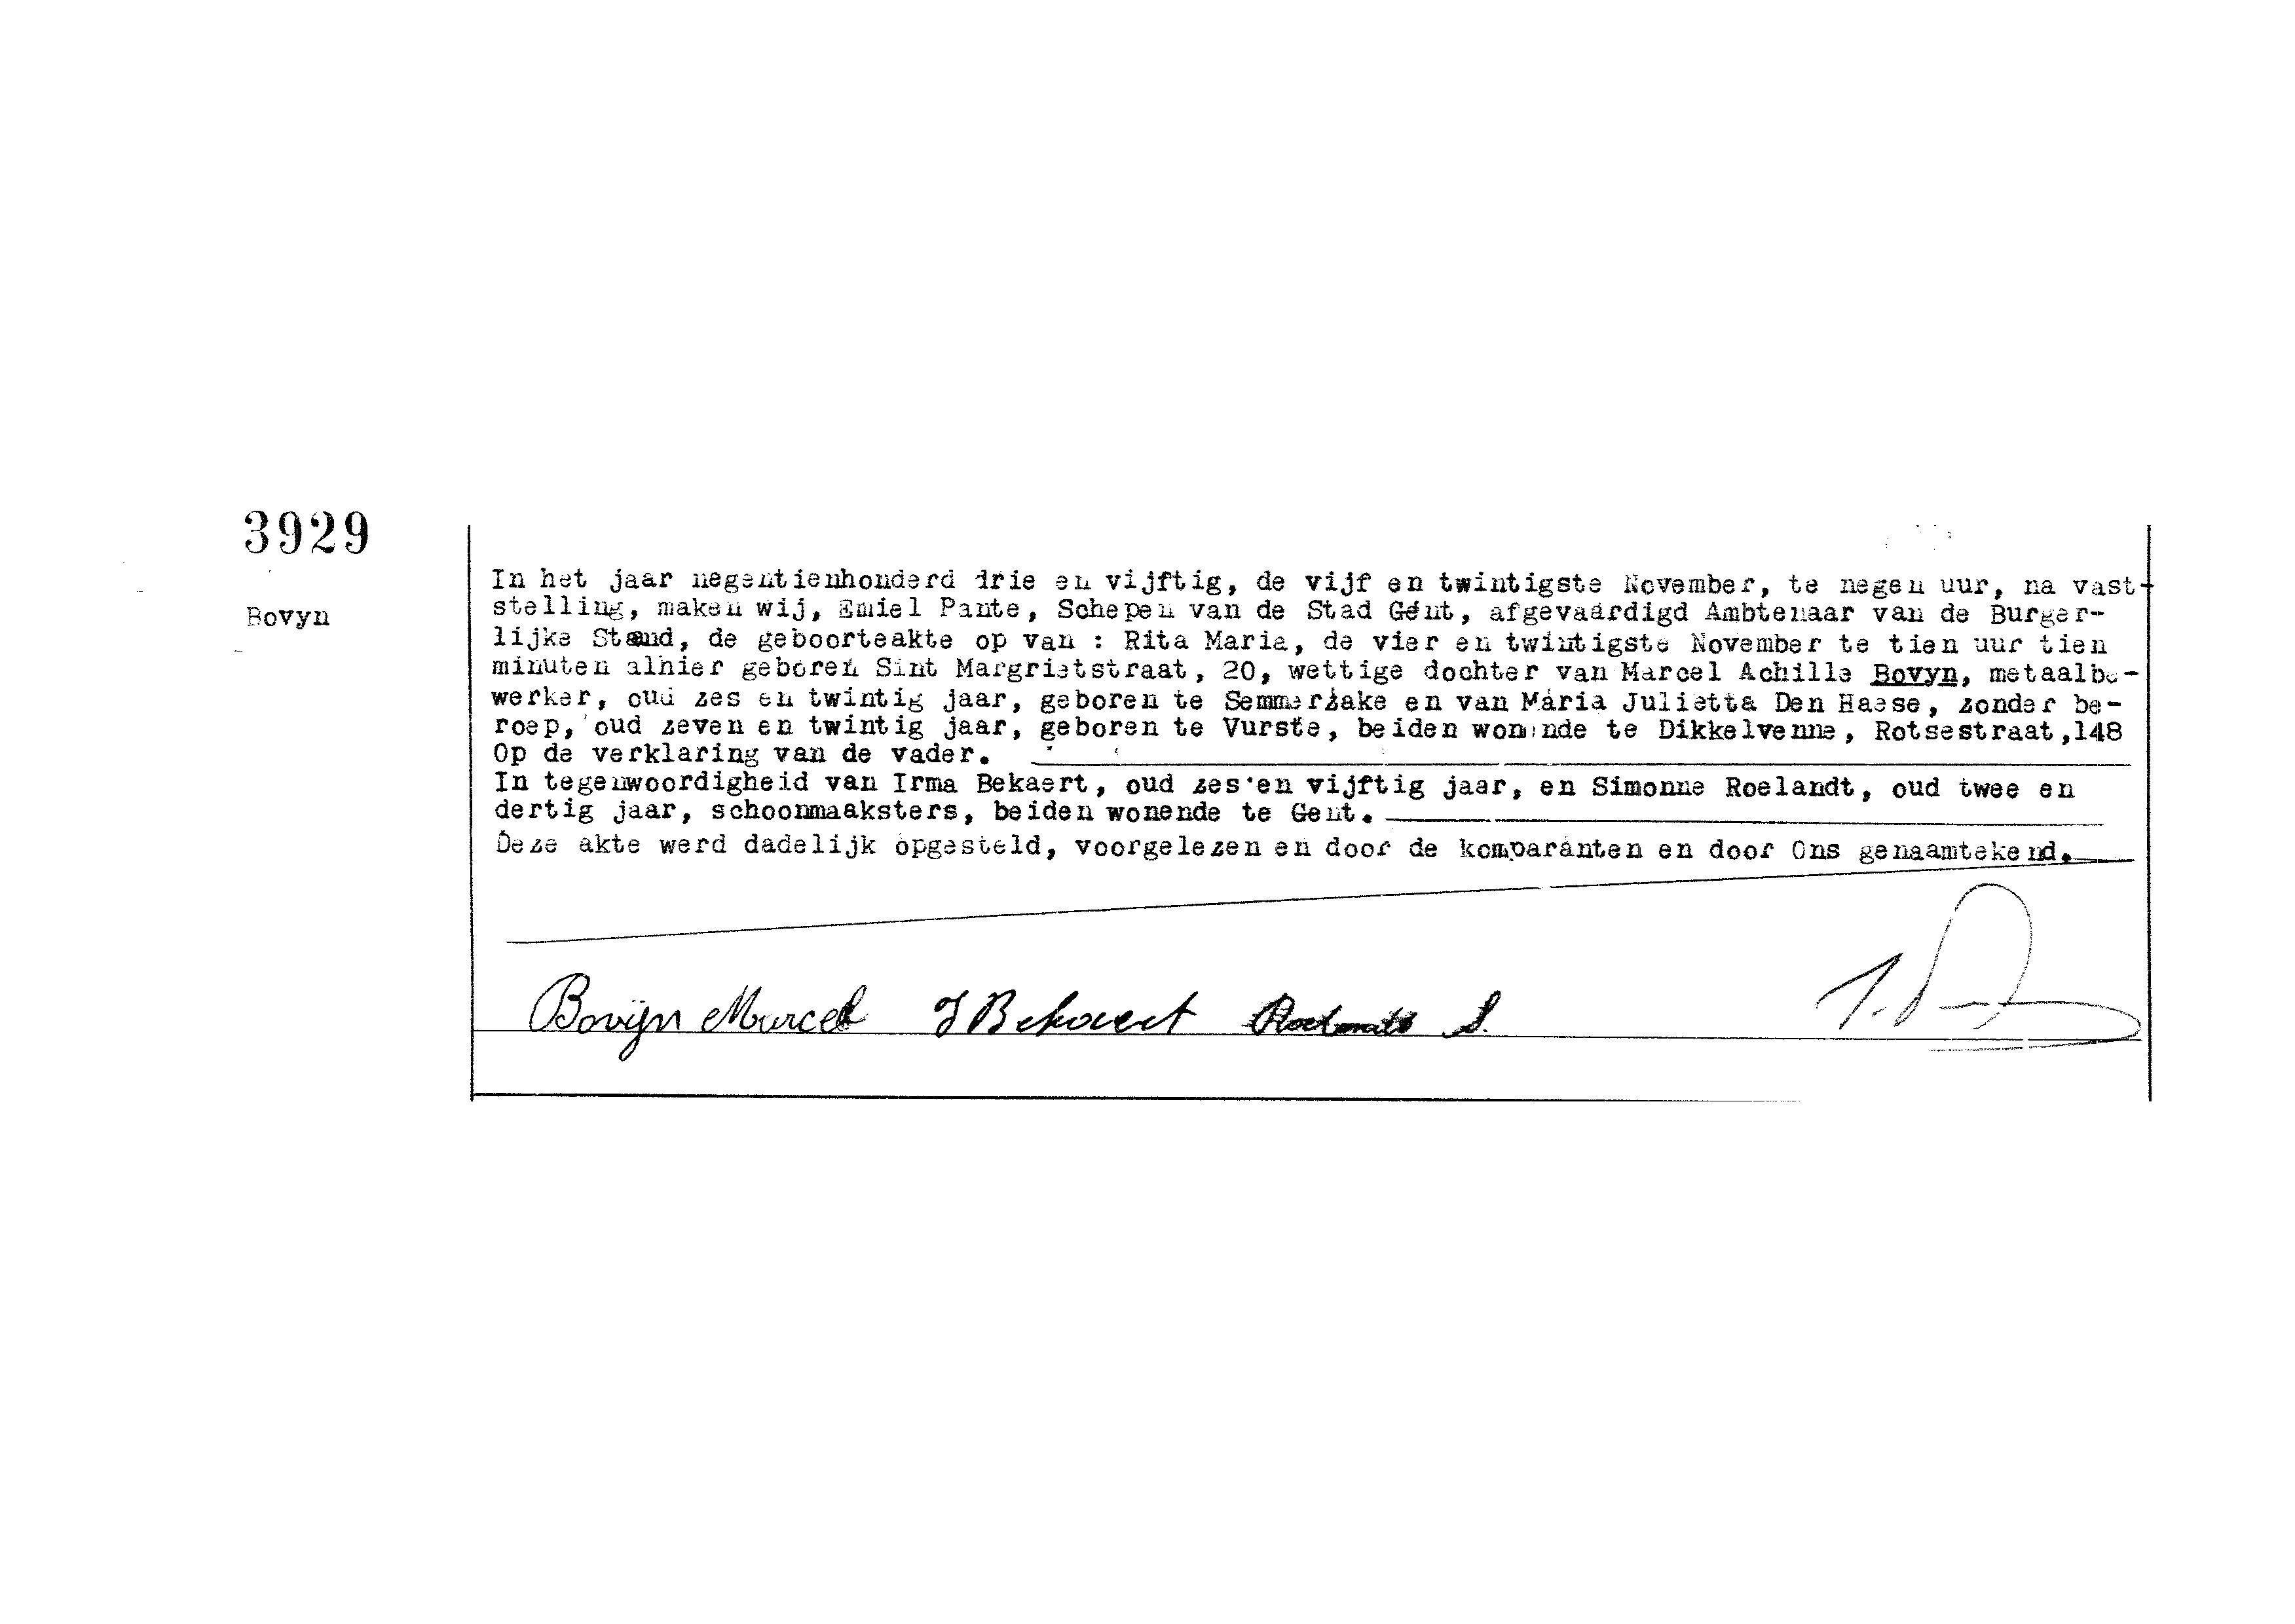 3929
Bovyn
In het jaar negentienhonderd drie en vijftig, de vijf en twintigste November, te negen uur, na vast-
stelling, maken wij, Emiel Pante, Schepen van de Stad Gent, afgevaardigd Ambtenaar van de Burger-
lijke Stand, de geboorteakte op van : Rita Maria, de vier en twintigste November te tien uur tien
minuten alhier geboren Sint Margrietstraat, 20, wettige dochter van Marcel Achille Bovyn, metaalbe-
werker, oud zes en twintig jaar, geboren te Semmerzake en van Maria Julietta Den Haese, zonder be-
roep, oud zeven en twintig jaar, geboren te Vurste, beiden wonende te Dikkelvenne, Rotsestraat,148
Op de verklaring van de vader.
In tegenwoordigheid van Irma Bekaert, oud zes en vijftig jaar, en Simonne Roelandt, oud twee en
dertig jaar, schoonmaaksters, beiden wonende te Gent.
Deze akte werd dadelijk opgesteld, voorgelezen en door de komparanten en door Ons genaamtekend.
Bovijn Marcel J Bekaert Roelandt S.